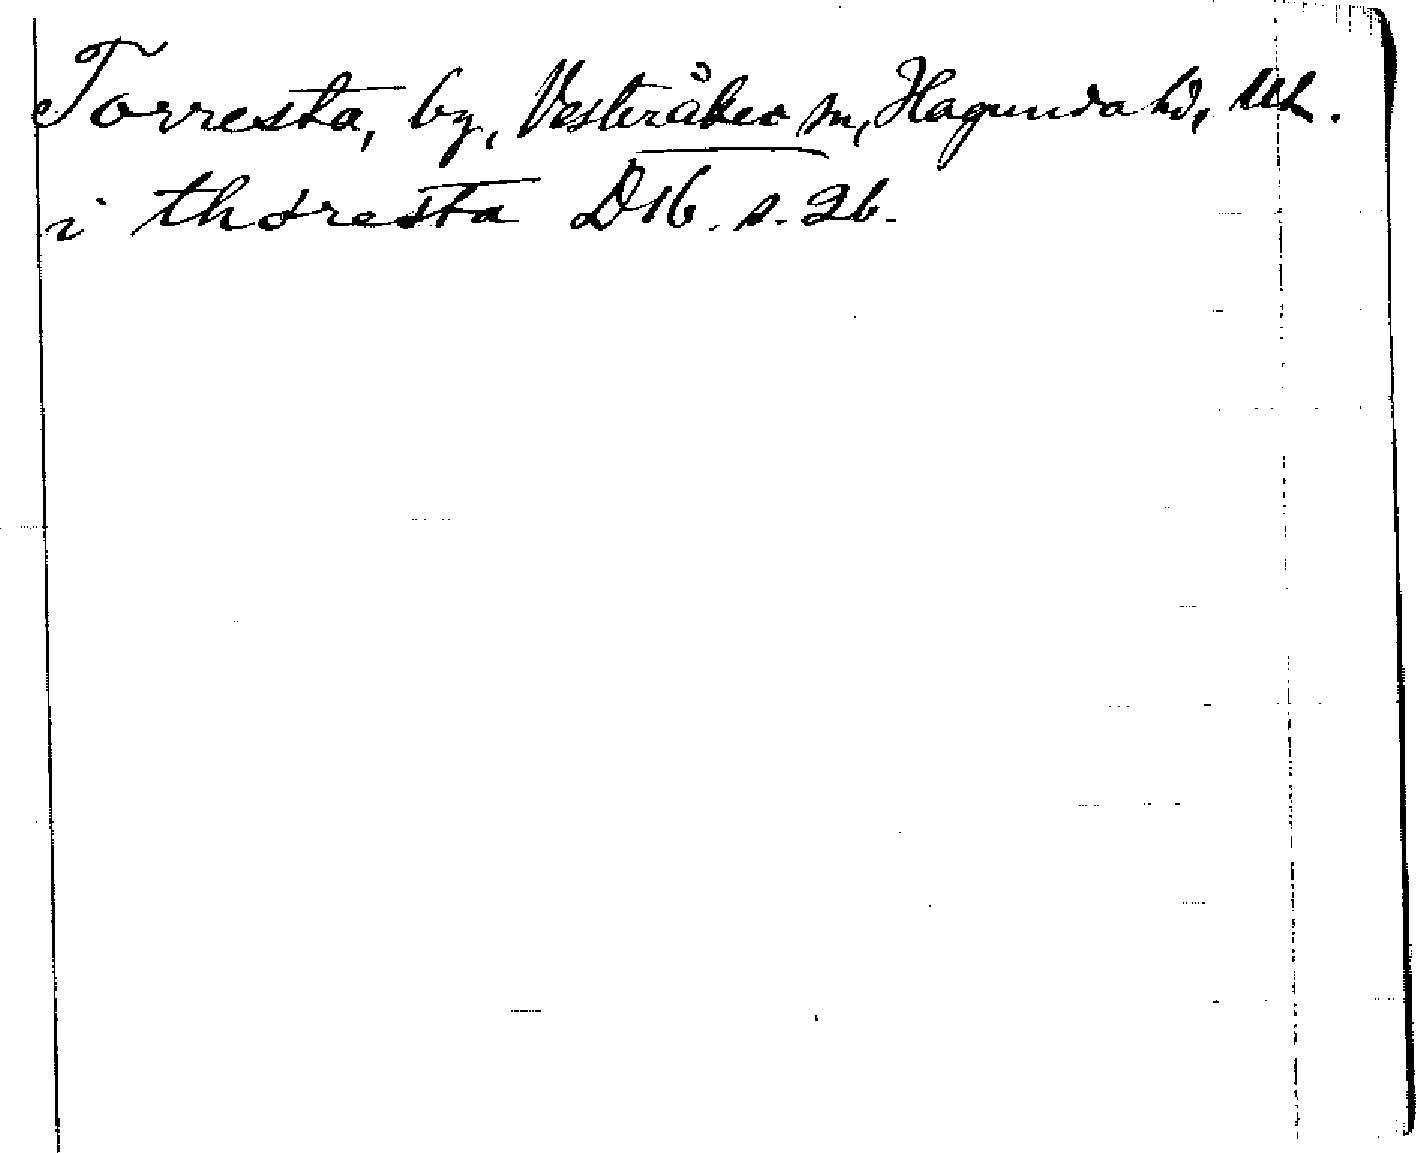 Torresta, by, Vesteråker sn, Hagunda hd, Upl.
i thøresta D16. s. 26.